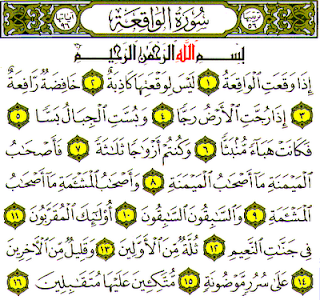 ترتيبها ٥٦ سُورَةُ الوَاقِعَةِ آياتها ٩٦
بِسْمِ اللهِ الرَّحْمَنِ الرَّحِيمِ
إِذَا وَقَعَتِ الْوَاقِعَةُ ١ لَيْسَ لِوَقْعَتِهَا كَاذِبَةٌ ٢ خَافِضَةٌ رَّافِعَةٌ
٣ إِذَا رُجَّتِ الْأَرْضُ رَجًّا ٤ وَبُسَّتِ الْجِبَالُ بَسًّا ٥
فَكَانَتْ هَبَاءً مُّنْبَثًّا ٦ وَكُنْتُمْ أَزْوَاجًا ثَلَاثَةً ٧ فَأَصْحَابُ
الْمَيْمَنَةِ مَا أَصْحَابُ الْمَيْمَنَةِ ٨ وَأَصْحَابُ الْمَشْئَمَةِ مَا أَصْحَابُ
الْمَشْئَمَةِ ٩ وَالسَّابِقُونَ السَّابِقُونَ ١٠ أُولَئِكَ الْمُقَرَّبُونَ ١١
فِي جَنَّاتِ النَّعِيمِ ١٢ ثُلَّةٌ مِّنَ الْأَوَّلِينَ ١٣ وَقَلِيلٌ مِّنَ الْآخِرِينَ
١٤ عَلَى سُرُرٍ مَّوْضُونَةٍ ١٥ مُتَّكِئِينَ عَلَيْهَا مُتَقَابِلِينَ ١٦